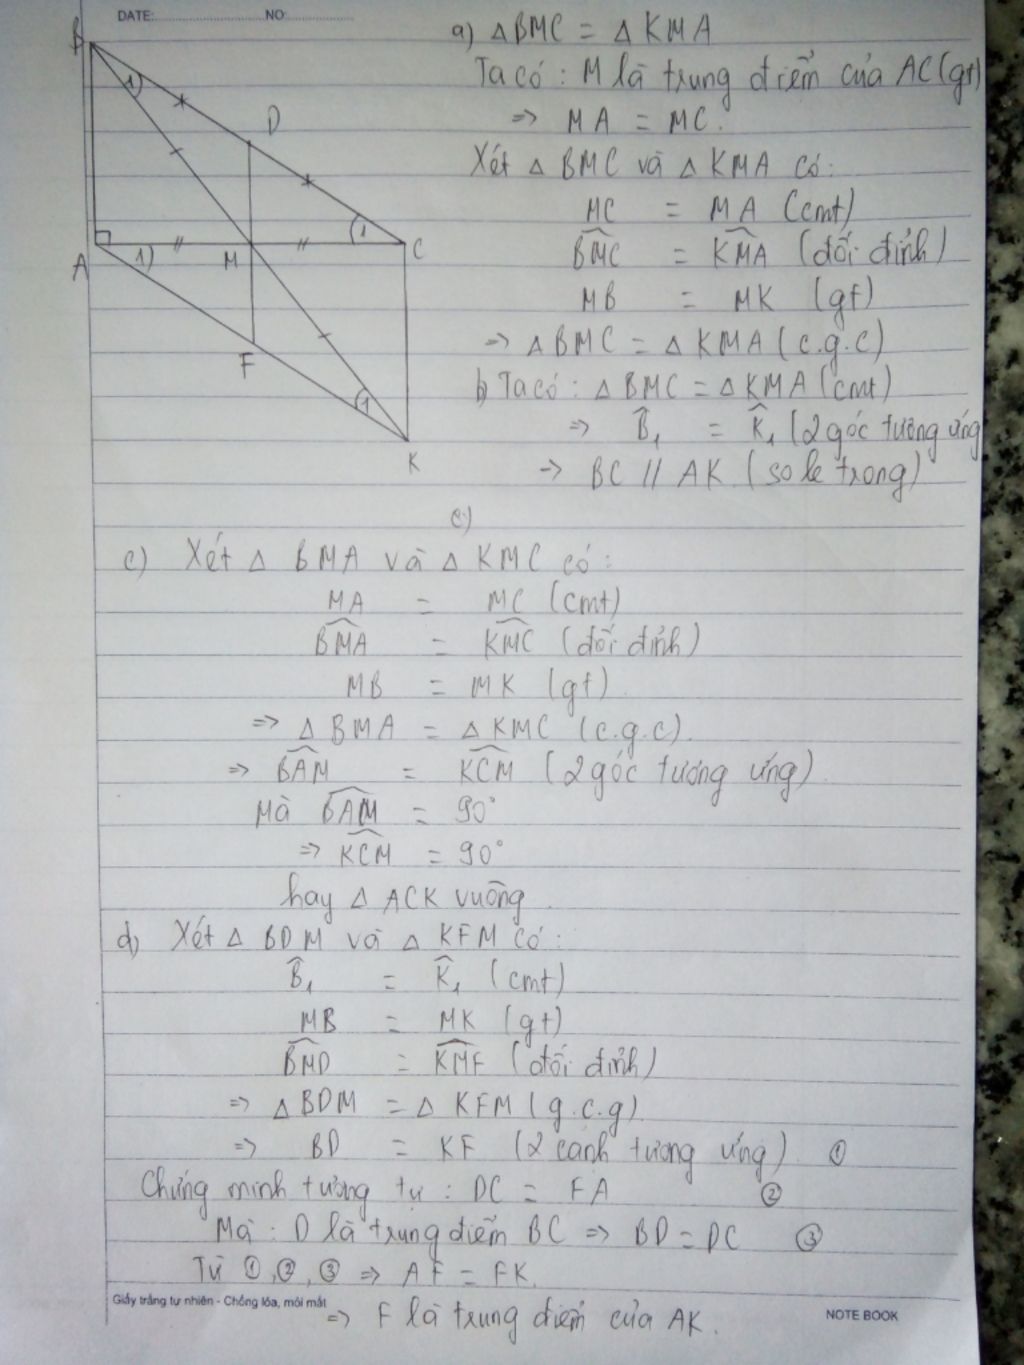 DATE: NO
a) △BMC = △KMA
Ta có : M là trung điểm của AC (gt)
=> MA = MC.
Xét △ BMC và △ KMA có:
MC = MA (cmt)
BMC = KMA (đối đỉnh)
MB = MK (gt)
=> △BMC = △KMA (c.g.c)
b) Ta có : △BMC = △KMA (cmt)
=> B₁ = K₁ (2 góc tương ứng
=> BC // AK (so le trong)
B
1
D
A
1
M
1
C
F
1
K
c)
c) Xét △ BMA và △ KMC có :
MA = MC (cmt)
BMA = KMC (đối đỉnh)
MB = MK (gt)
=> △BMA = △KMC (c.g.c).
=> BAM = KCM (2 góc tương ứng)
Mà BAM = 90°
=> KCM = 90°
hay △ ACK vuông
d) Xét △ BDM và △ KFM có :
B₁ = K₁ (cmt)
MB = MK (gt)
BMD = KMF (đối đỉnh)
=> △BDM = △ KFM (g.c.g)
=> BD = KF (2 cạnh tương ứng) ①
Chứng minh tương tự : DC = FA ②
Mà : D là trung điểm BC => BD = DC ③
Từ ①, ②, ③ => AF = FK.
Giấy trắng tự nhiên - Chống lóa, mỏi mắt
=> F là trung điểm của AK.
NOTE BOOK